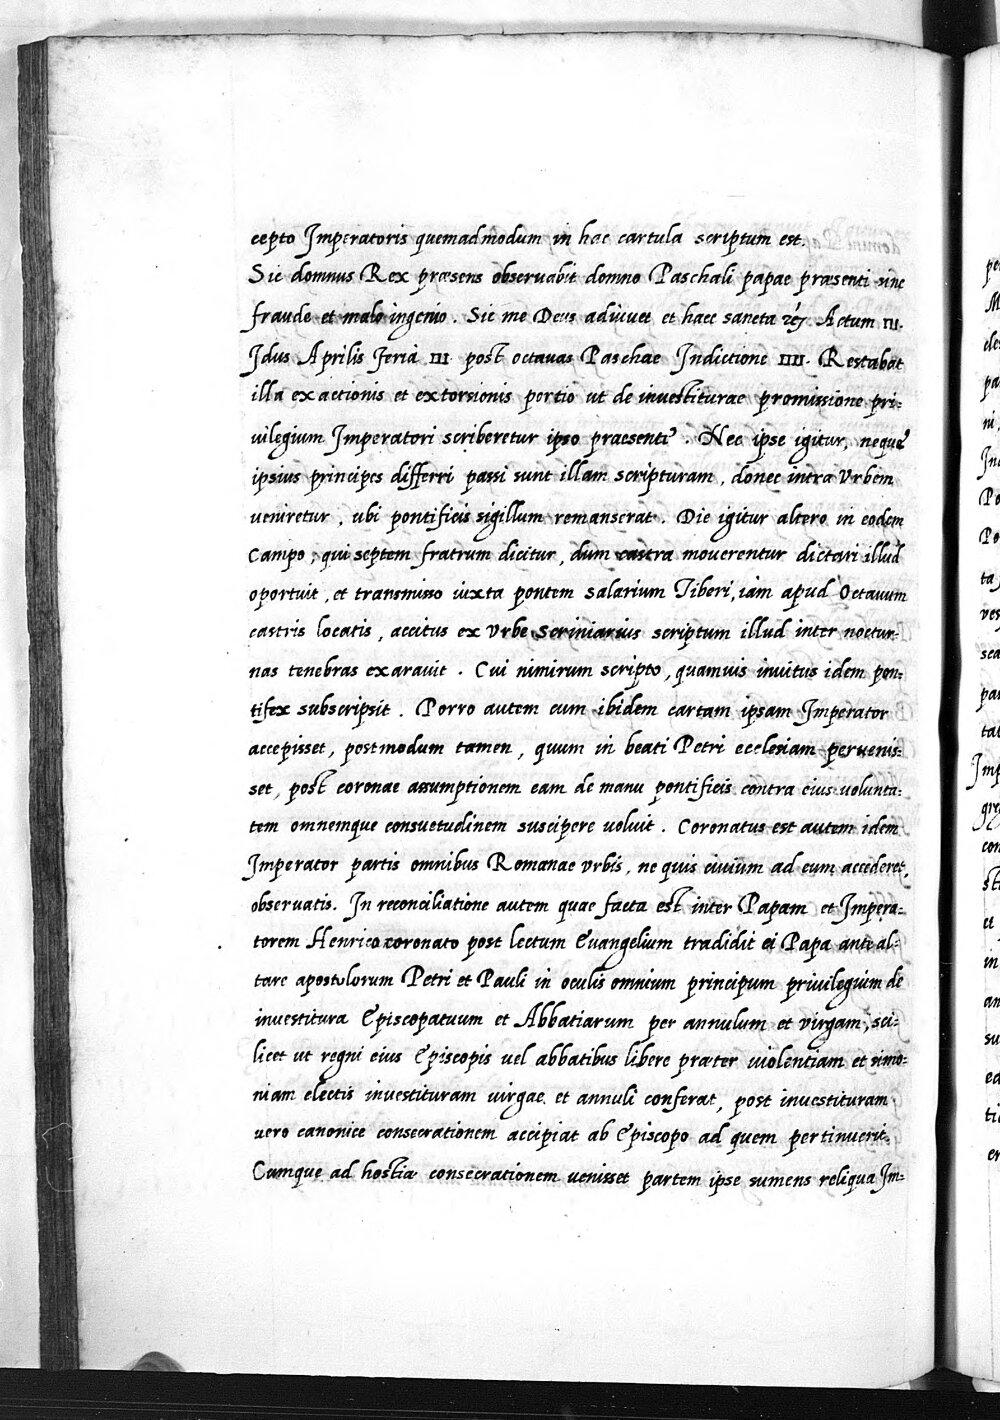 cepto Imperatoris quemadmodum in hac cartula scriptum est.
Sic domnus Rex præsens observabit domno Paschali papae præsenti sine
fraude et malo ingenio. Sic me Deus adiuvet et haec sancta Actum III.
Idus Aprilis Feria III post octavas Paschae Indictione IIII. Restabat
illa exactionis et extorsionis portio ut de investiturae promissione pri-
uilegium Imperatori scriberetur ipso praesente. Nec ipse igitur, neque
ipsius principes differri passi sunt illam scripturam, donec intra Vrbem
ueniretur, ubi pontificis sigillum remanserat. Die igitur altero in eodem
Campo, qui septem fratrum dicitur, dum castra mouerentur dictari illud
oportuit, et transmisso iuxta pontem Salarium Tiberi, iam apud Octauum
castris locatis, accitus ex Vrbe Scriniarius scriptum illud inter noctur-
nas tenebras exarauit. Cui nimirum scripto, quamuis inuitus idem pon-
tifex subscripsit. Porro autem cum ibidem cartam ipsam Imperator
accepisset, postmodum tamen, quum in beati Petri ecclesiam peruenis-
set, post coronae assumptionem eam de manu pontificis contra eius uolunta-
tem omnemque consuetudinem suscipere uoluit. Coronatus est autem idem
Imperator partis omnibus Romanae vrbis, ne quis ciuium ad eum accederet,
obseruatis. In reconciliatione autem quae facta est inter Papam et Impera-
torem Henrico coronato post lectum Euangelium tradidit ei Papa ante al-
tare apostolorum Petri et Pauli in oculis omnium principum priuilegium de
inuestitura Episcopatuum et Abbatiarum per annulum et virgam, sci-
licet ut regni eius Episcopis uel abbatibus libere præter uiolentiam et simo-
niam electis inuestituram uirgae et annuli conferat, post inuestituram
uero canonice consecrationem accipiat ab Episcopo ad quem pertinuerit.
Cumque ad hostiæ consecrationem uenisset partem ipse sumens reliqua Im-